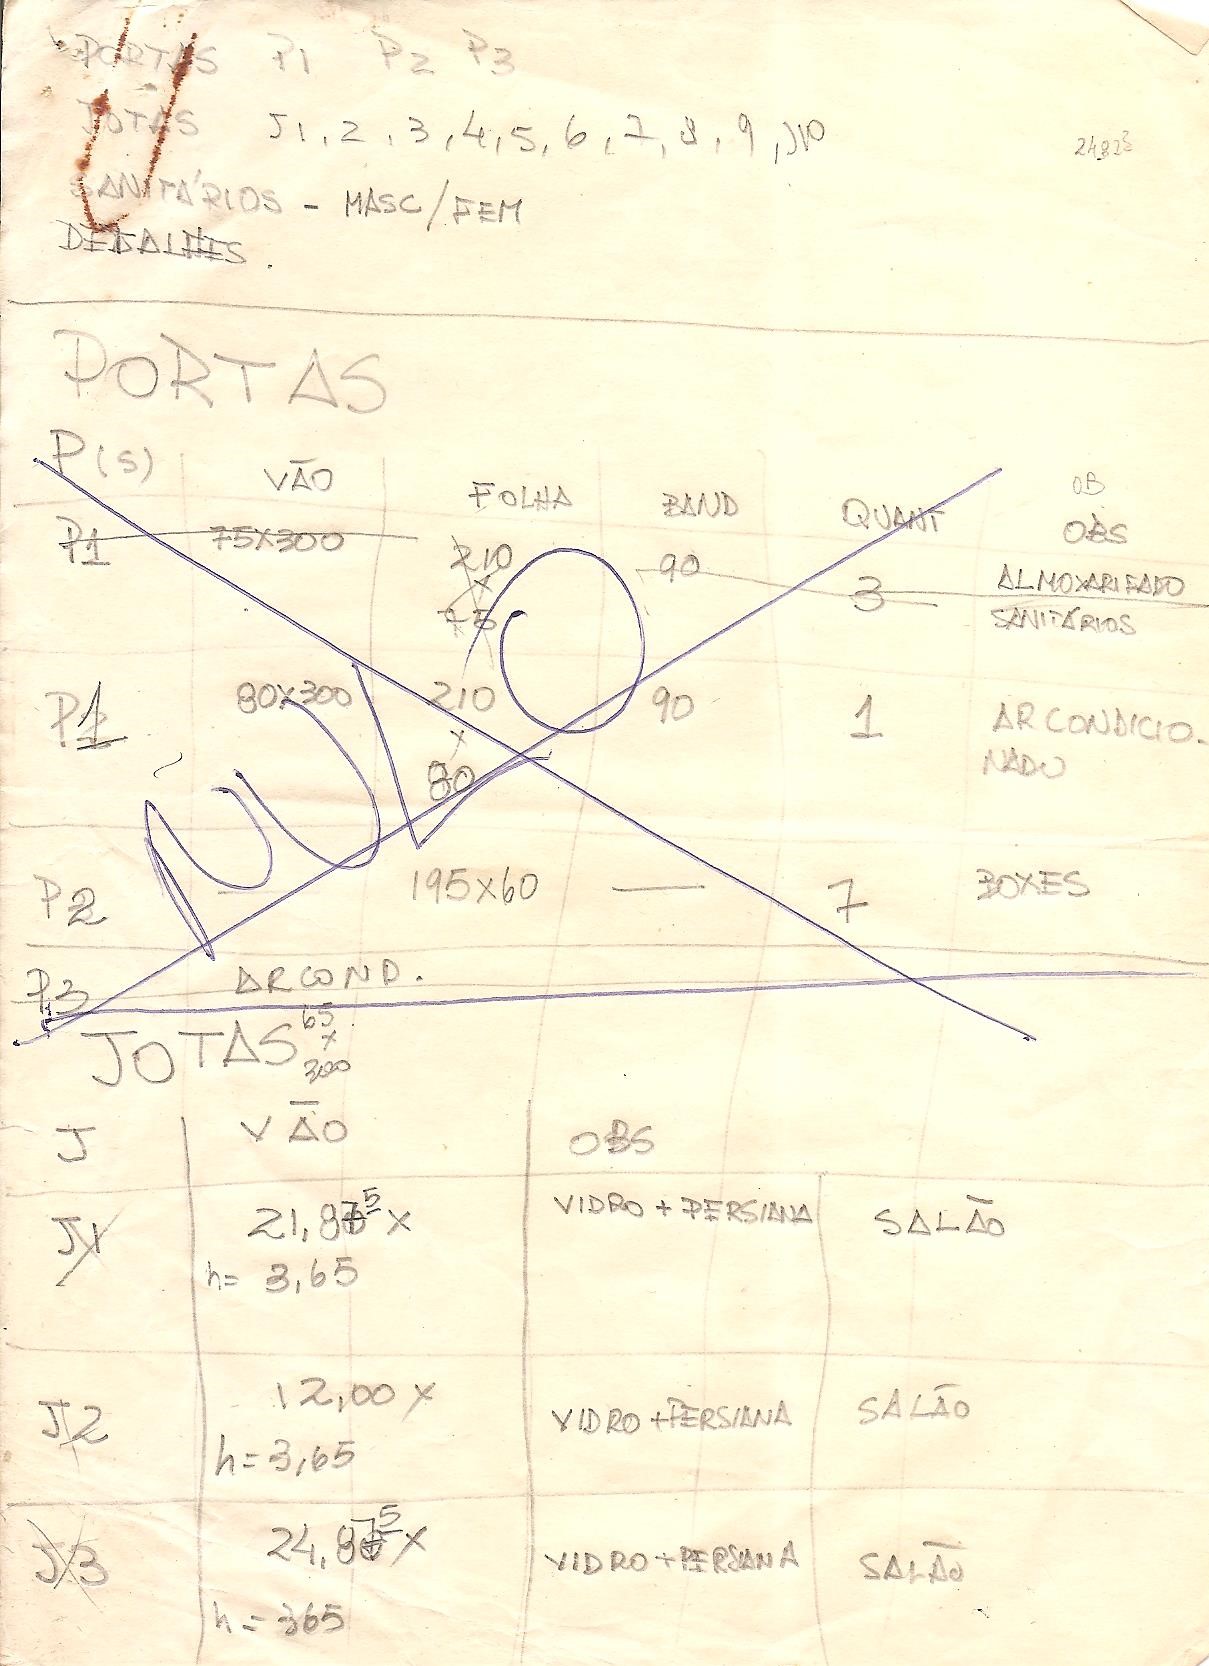 PORTAS P1 P2 P3
JOTAS J1, 2, 3, 4, 5, 6, 7, 8, 9, J10
SANITÁRIOS - MASC/FEM
DETALHES.
PORTAS
P(S) VÃO FOLHA BAND QUANT OB
OBS
P1 75X300 210 X 75 90 3 ALMOXARIFADO
SANITÁRIOS
P1 80X300 210 X 80 90 1 AR CONDICIO-
NADO
NULO
P2 — 195X60 — 7 BOXES
P3 AR COND.
JOTAS 65 X 300
J VÃO OBS
J1 21,875 X VIDRO + PERSIANA SALÃO
h= 3,65
J2 12,00 X VIDRO + PERSIANA SALÃO
h= 3,65
J3 24,875 X VIDRO + PERSIANA SALÃO
h= 365